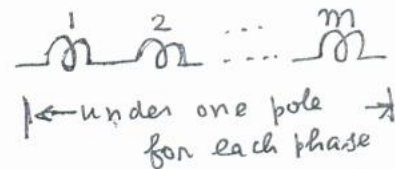 1 2 .... m
|← under one pole →|
for each phase